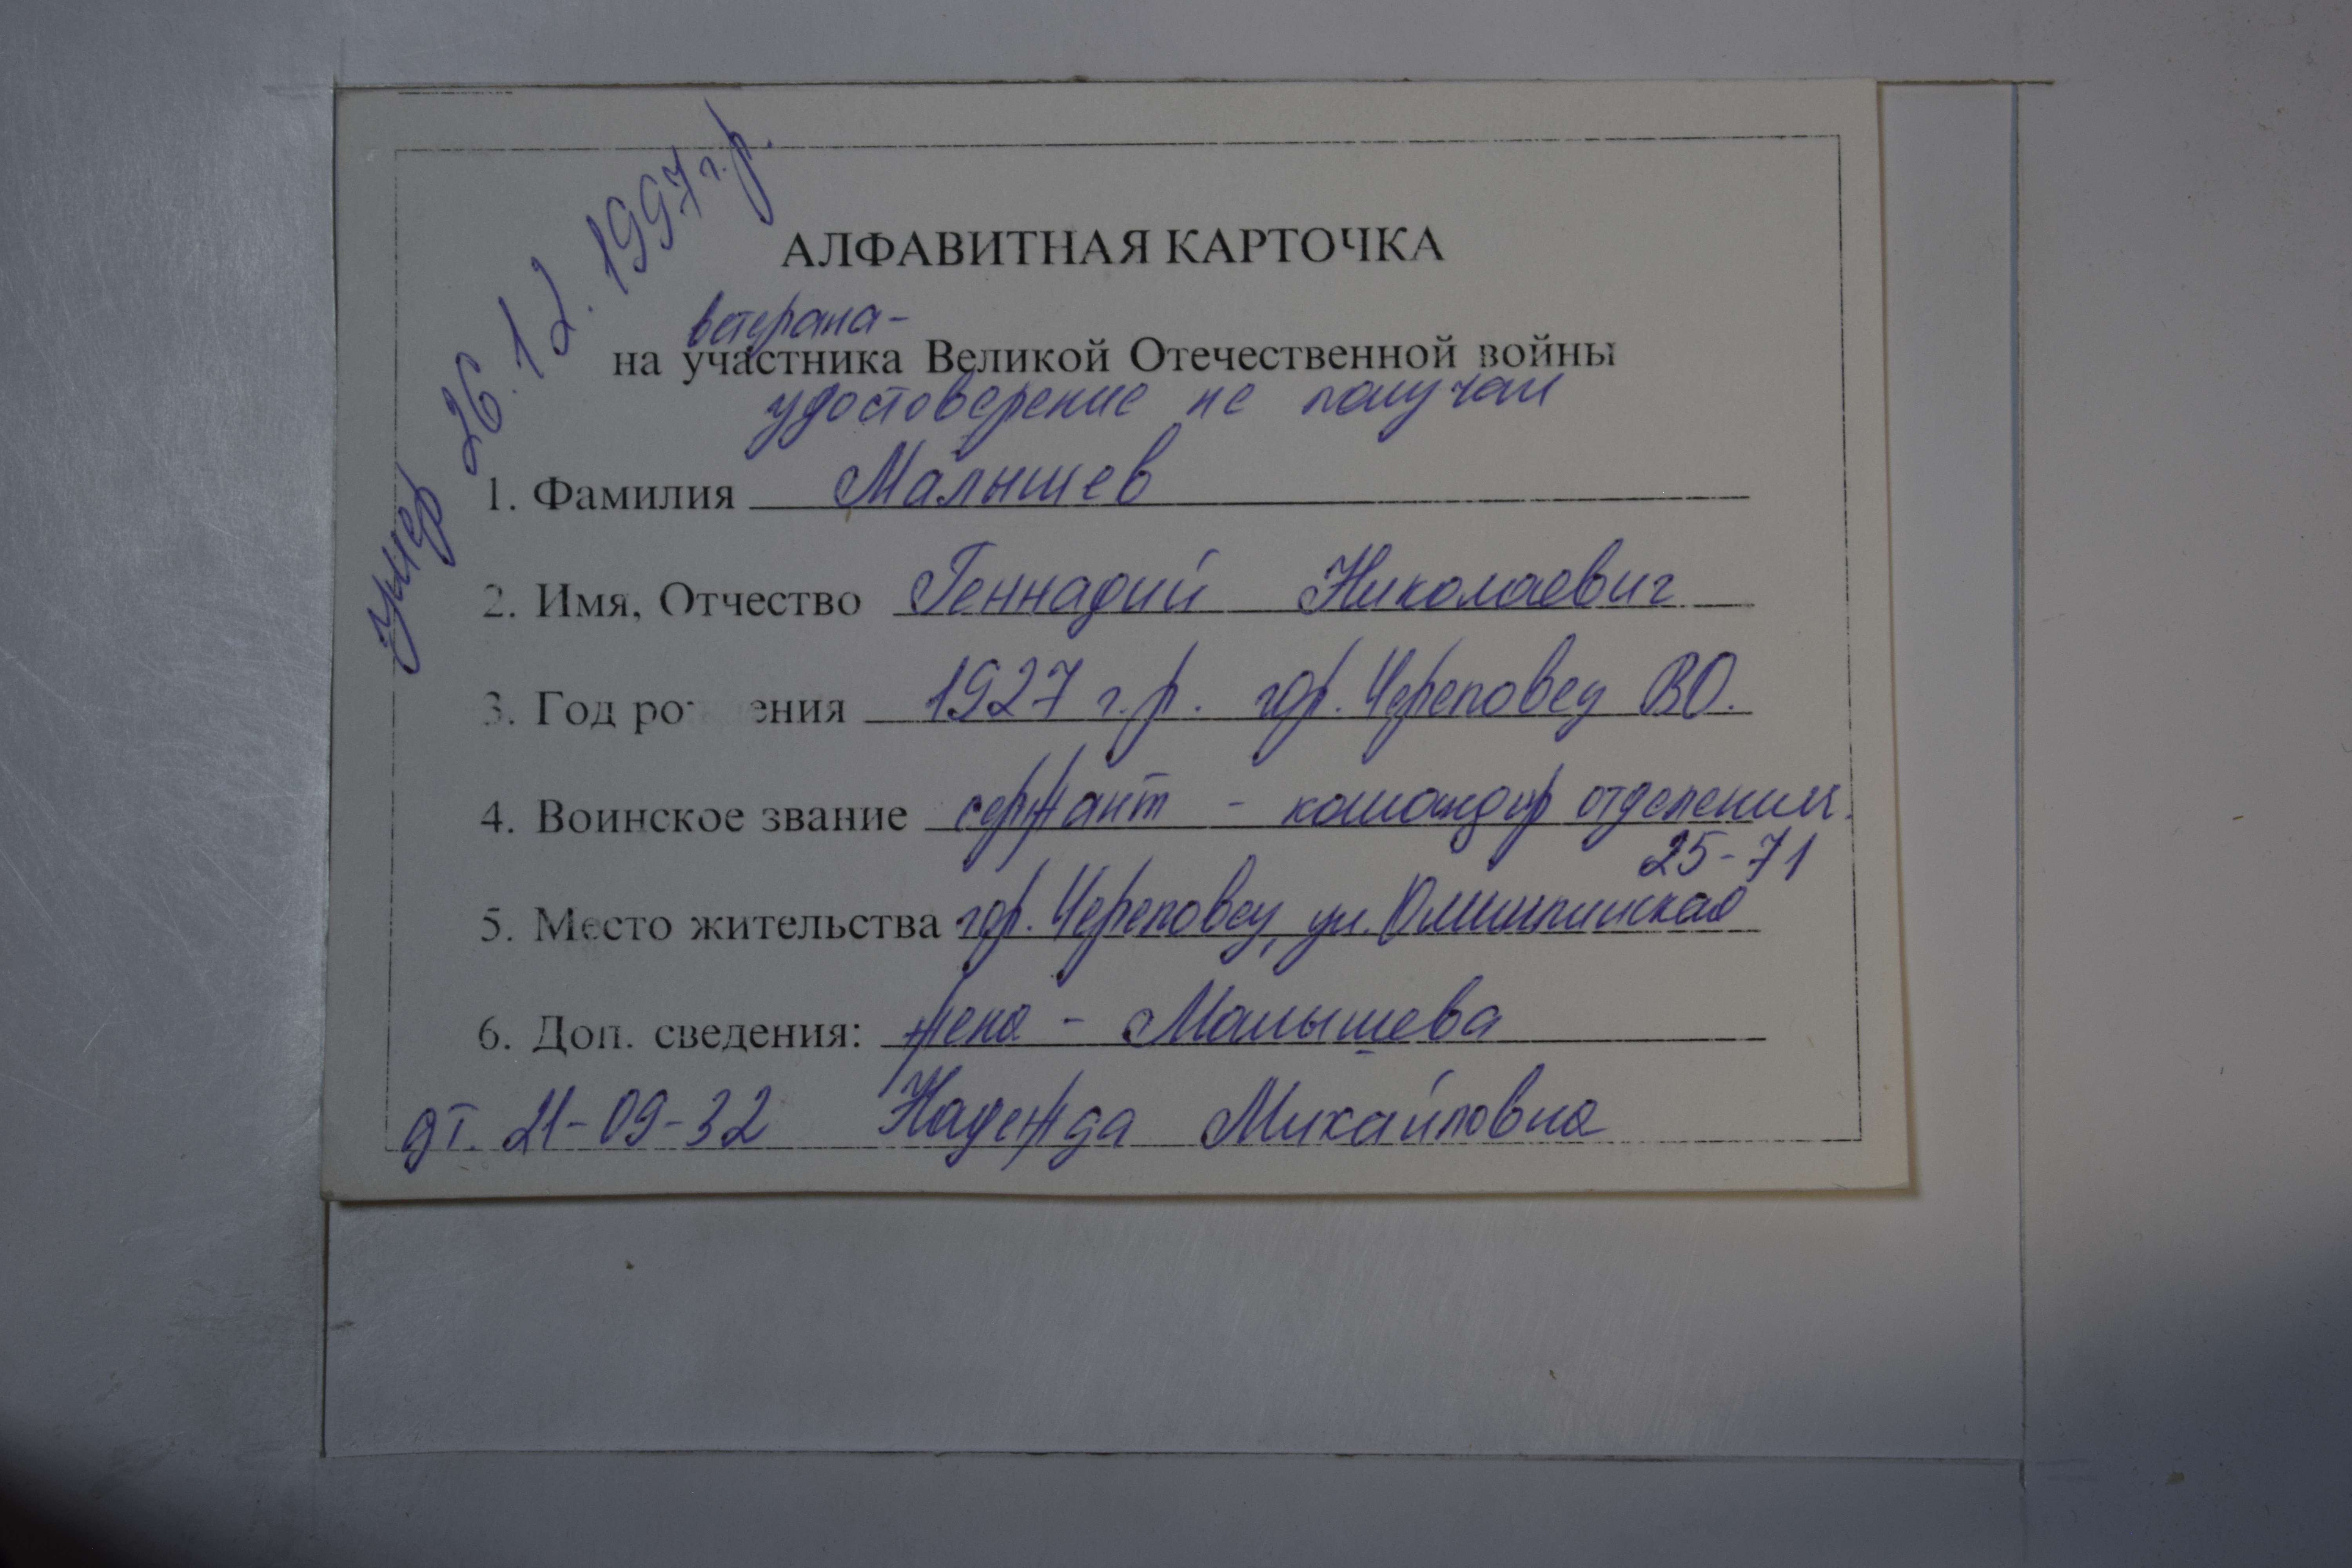 умер 26.12.1997 г.р.
АЛФАВИТНАЯ КАРТОЧКА
ветерана-
на участника Великой Отечественной войны
удостоверение не получал
1. Фамилия Малышев
2. Имя, Отчество Геннадий Николаевич
3. Год рождения 1927 г.р. гор. Череповец ВО.
4. Воинское звание сержант - командир отделения.
25-71
5. Место жительства гор. Череповец, ул. Олимпийская
6. Доп. сведения: жена - Малышева
дт. 21-09-32 Надежда Михайловна